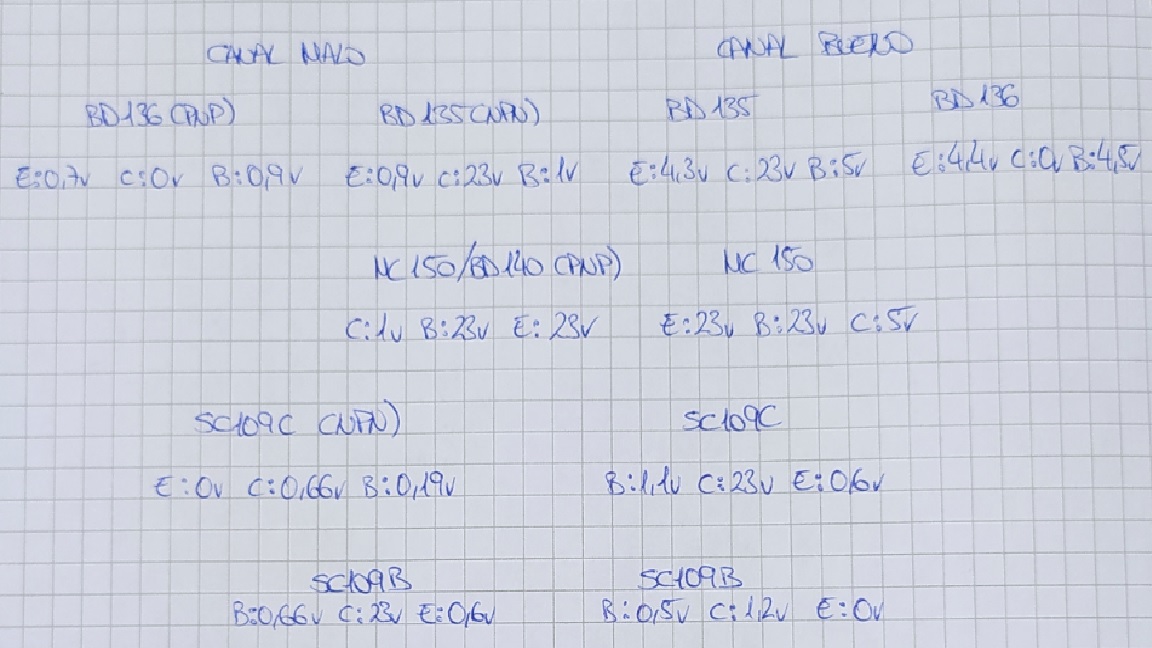 CANAL MALO CANAL BUENO
BD136 (PNP) BD135 (NPN) BD135 BD136
E:0,7v C:0v B:0,9v E:0,9v C:23v B:1v E:4,3v C:23v B:5v E:4,4v C:0v B:4,5v
MC150/BD140 (PNP) MC 150
C:1v B:23v E:23v E:23v B:23v C:5v
SC109C (NPN) SC109C
E:0v C:0,66v B:0,19v B:1,1v C:23v E:0,6v
SC109B SC109B
B:0,66v C:23v E:0,6v B:0,5v C:1,2v E:0v